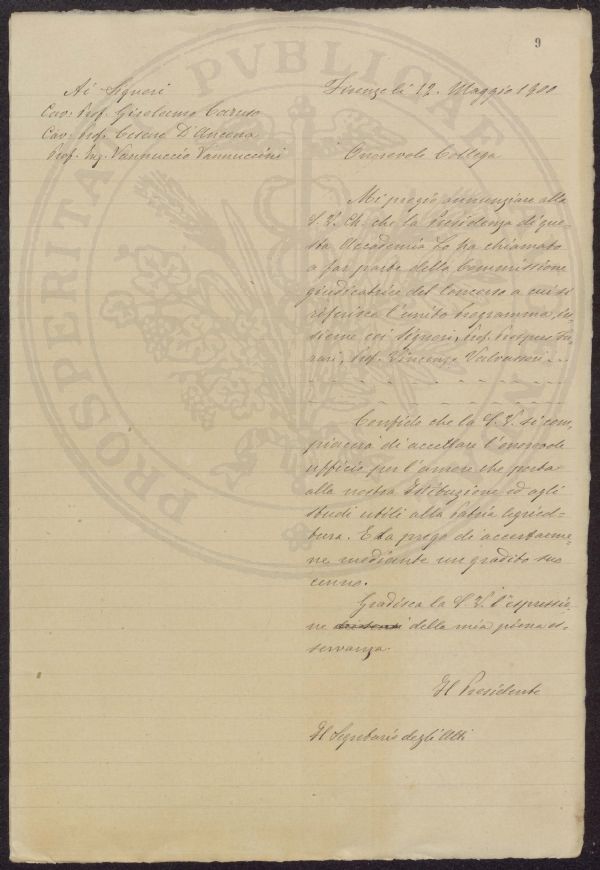 9
Ai Signori
Cav. Prof. Girolamo Caruso
Cav. Prof. Cesare D'Ancona
Prof. Ing. Vannuccio Vannuccini
Firenze li 12. Maggio 1900
Onorevole Collega
Mi pregio annunziare alla
S. V. Ch. che la Presidenza di que-
sta Accademia Lo ha chiamato
a far parte della Commissione
giudicatrice del Concorso a cui si
riferisce l'unito programma, in-
sieme coi Signori, Prof. Prospero Fer-
rari, Prof. Vincenzo Valvassori
Confido che la S. V. si com-
piacerà di accettare l'onorevole
ufficio per l'amore che porta
alla nostra Istituzione ed agli
studi utili alla patria Agricol-
tura. E La prego di accertarme-
ne mediante un gradito suo
cenno.
Gradisca la S. V. l'espressio-
ne della mia piena os-
servanza.
Il Presidente
Il Segretario degli Atti
PROSPERITATI PVBLICAE